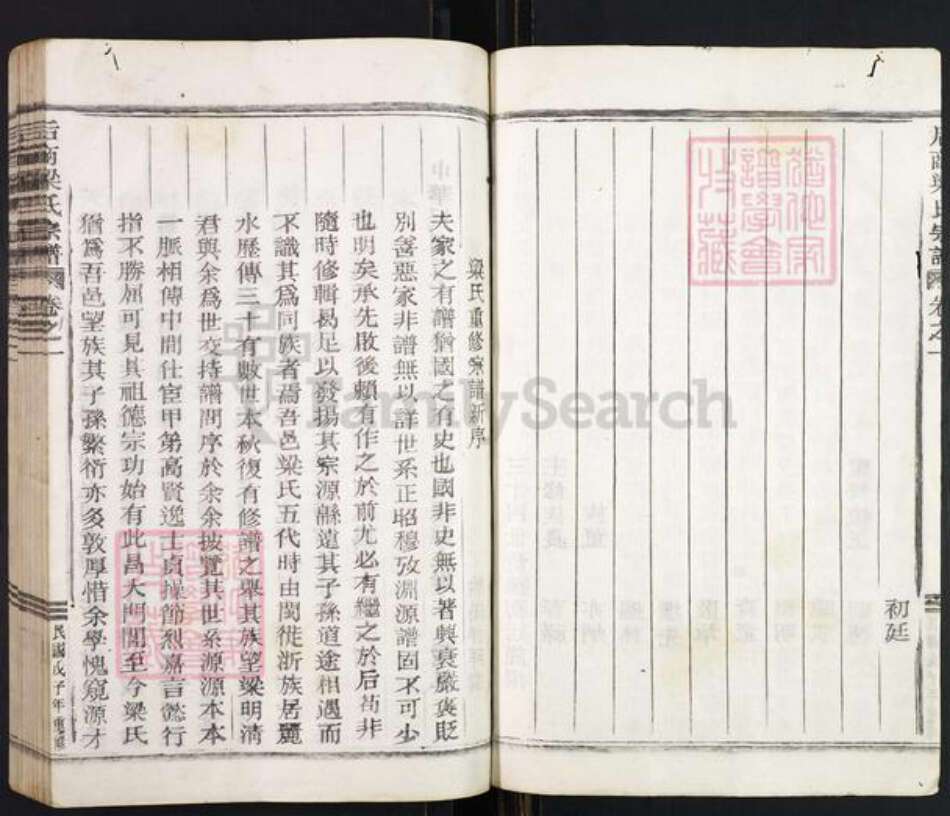 初廷
梁氏重修宗譜新序
夫家之有譜猶國之有史也國非史無以著興衰嚴褒貶
別善惡家非譜無以詳世系正昭穆攷淵源譜固不可少
也明矣承先啟後賴有作之於前尤必有繼之於后苟非
隨時修輯曷足以發揚其宗源緜遠其子孫道途相遇而
不識其爲同族者焉吾邑梁氏五代時由閩徙浙族居麗
水歷傳三十有數世本秋復有修譜之舉其族望梁明清
君與余爲世交持譜問序於余余披覽其世系源源本本
一脈相傳中間仕宦甲第高賢逸士貞操節烈嘉言懿行
指不勝屈可見其祖德宗功始有此昌大門閭至今梁氏
猶爲吾邑望族其子孫繁衍亦多敦厚惜余學愧窺源才
后商梁氏宗譜
卷之一
民國戊子年重修
FamilySearch